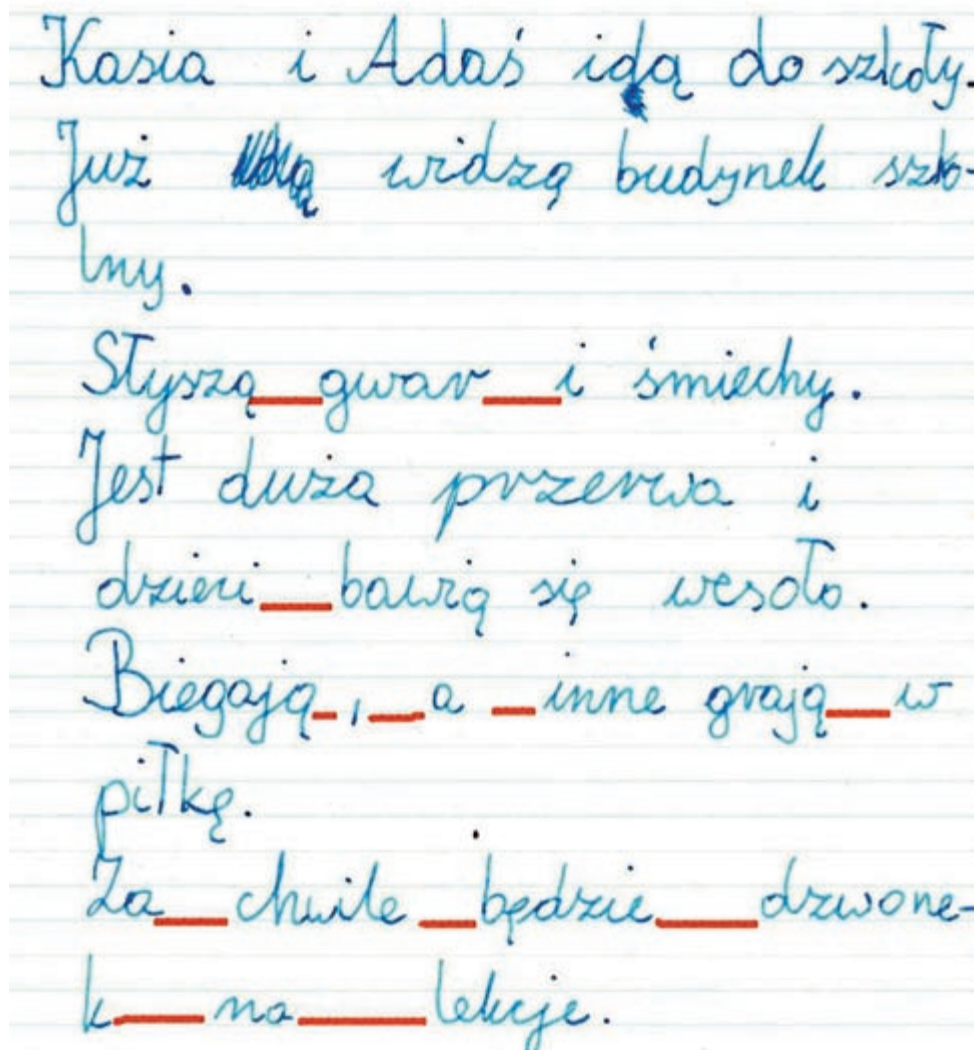 Kasia i Adaś idą do szkoły.
Już widzą budynek szko-
lny.
Słyszą gwar i śmiechy.
Jest duża przerwa i
dzieci bawią się wesoło.
Biegają, a inne grają w
piłkę.
Za chwile będzie dzwone-
k na lekcje.